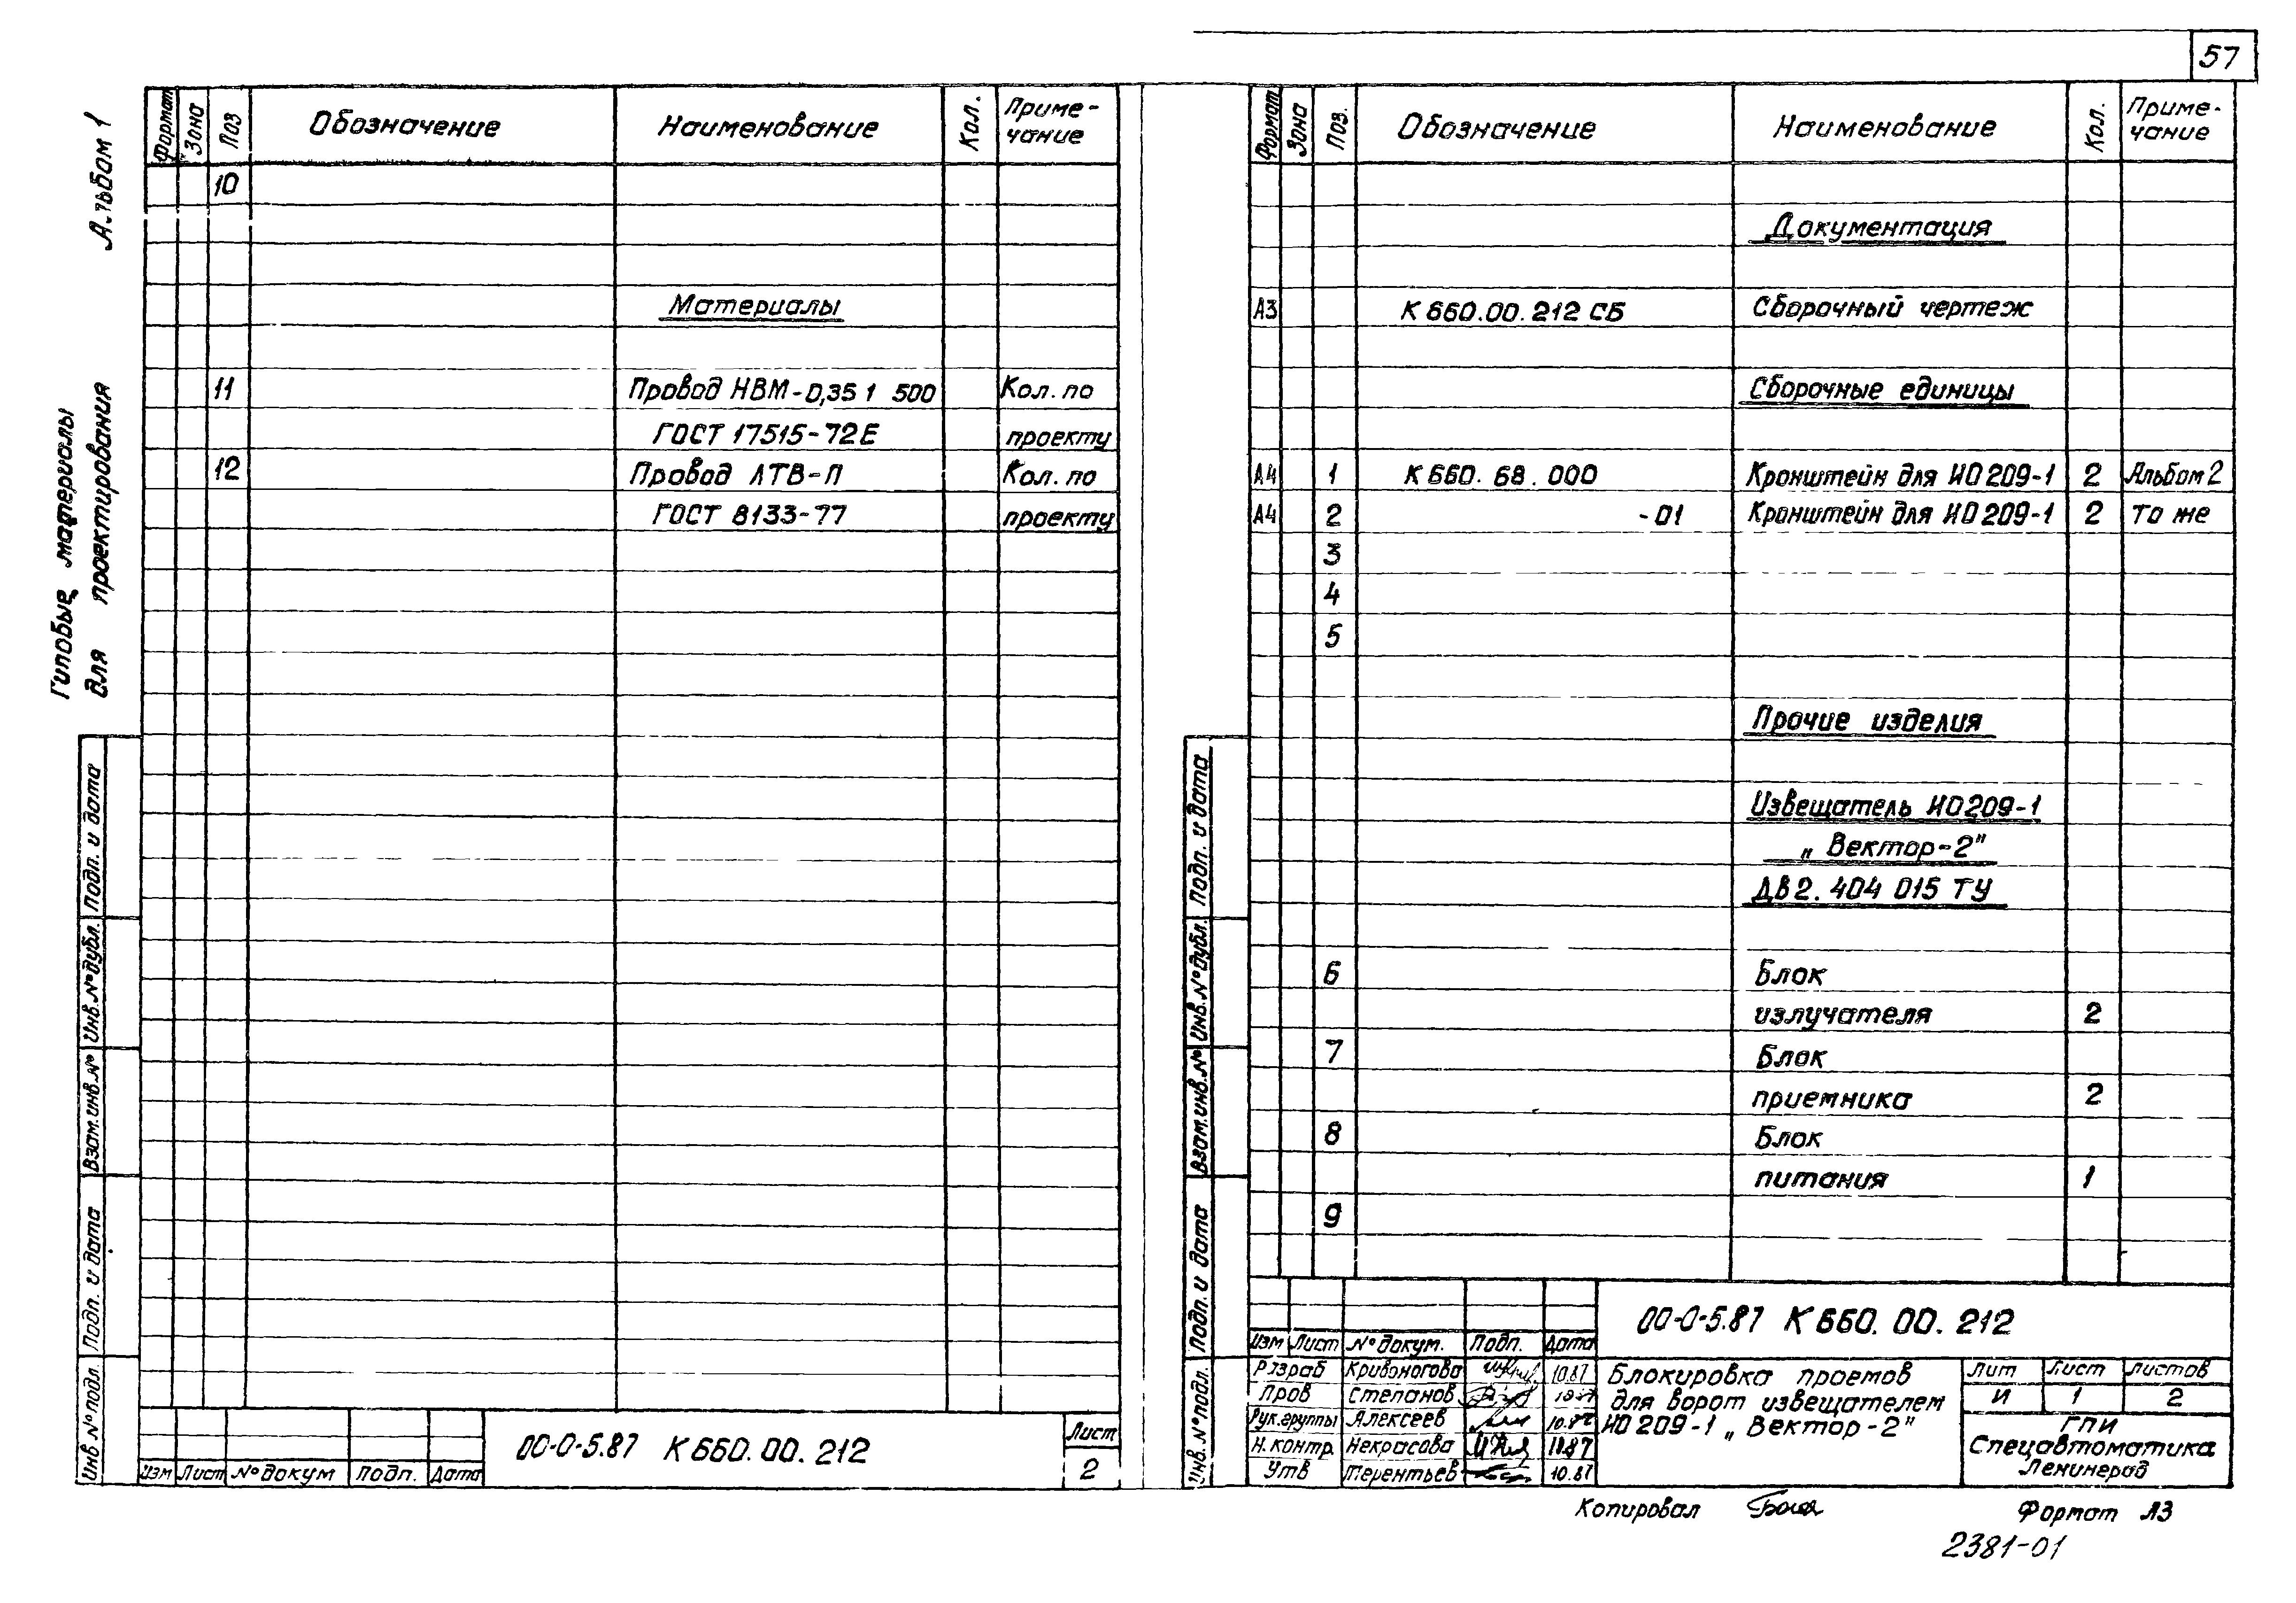 57
Альбом 1
Типовые материалы
для проектирования
Формат Зона Поз Обозначение Наименование Кол. Приме-
чание
10
Материалы
11 Провод НВМ-0,35 1 500 Кол. по
ГОСТ 17515-72Е проекту
12 Провод ЛТВ-П Кол. по
ГОСТ 8133-77 проекту
Подп. и дата
Инв.№дубл.
Взам.инв.№
Подп. и дата
Инв №подл
Изм Лист №докум Подп. Дата
00-0-5.87 К660.00.212
Лист
2
Формат Зона Поз. Обозначение Наименование Кол. Приме-
чание
Документация
А3 К660.00.212 СБ Сборочный чертеж
Сборочные единицы
А4 1 К660.68.000 Кронштейн для ИО209-1 2 Альбом 2
А4 2 -01 Кронштейн для ИО209-1 2 то же
3
4
5
Прочие изделия
Извещатель ИО209-1
„Вектор-2"
ДВ2.404 015 ТУ
6 Блок
излучателя 2
7 Блок
приемника 2
8 Блок
питания 1
9
Подп. и дата
Инв.№дубл.
Взам.инв.№
Подп. и дата
Инв.№подл.
00-0-5.87 К660.00.212
Изм Лист №докум. Подп. Дата
Разраб Кривоногова 10.87
Пров Степанов 10.87
Рук.группы Алексеев 10.87
Н.контр. Некрасова 10.87
Утв Терентьев 10.87
Блокировка проемов
для ворот извещателем
ИО209-1 „Вектор-2"
Лит Лист Листов
И 1 2
ГПИ
Спецавтоматика
Ленинград
Копировал
Формат А3
2381-01